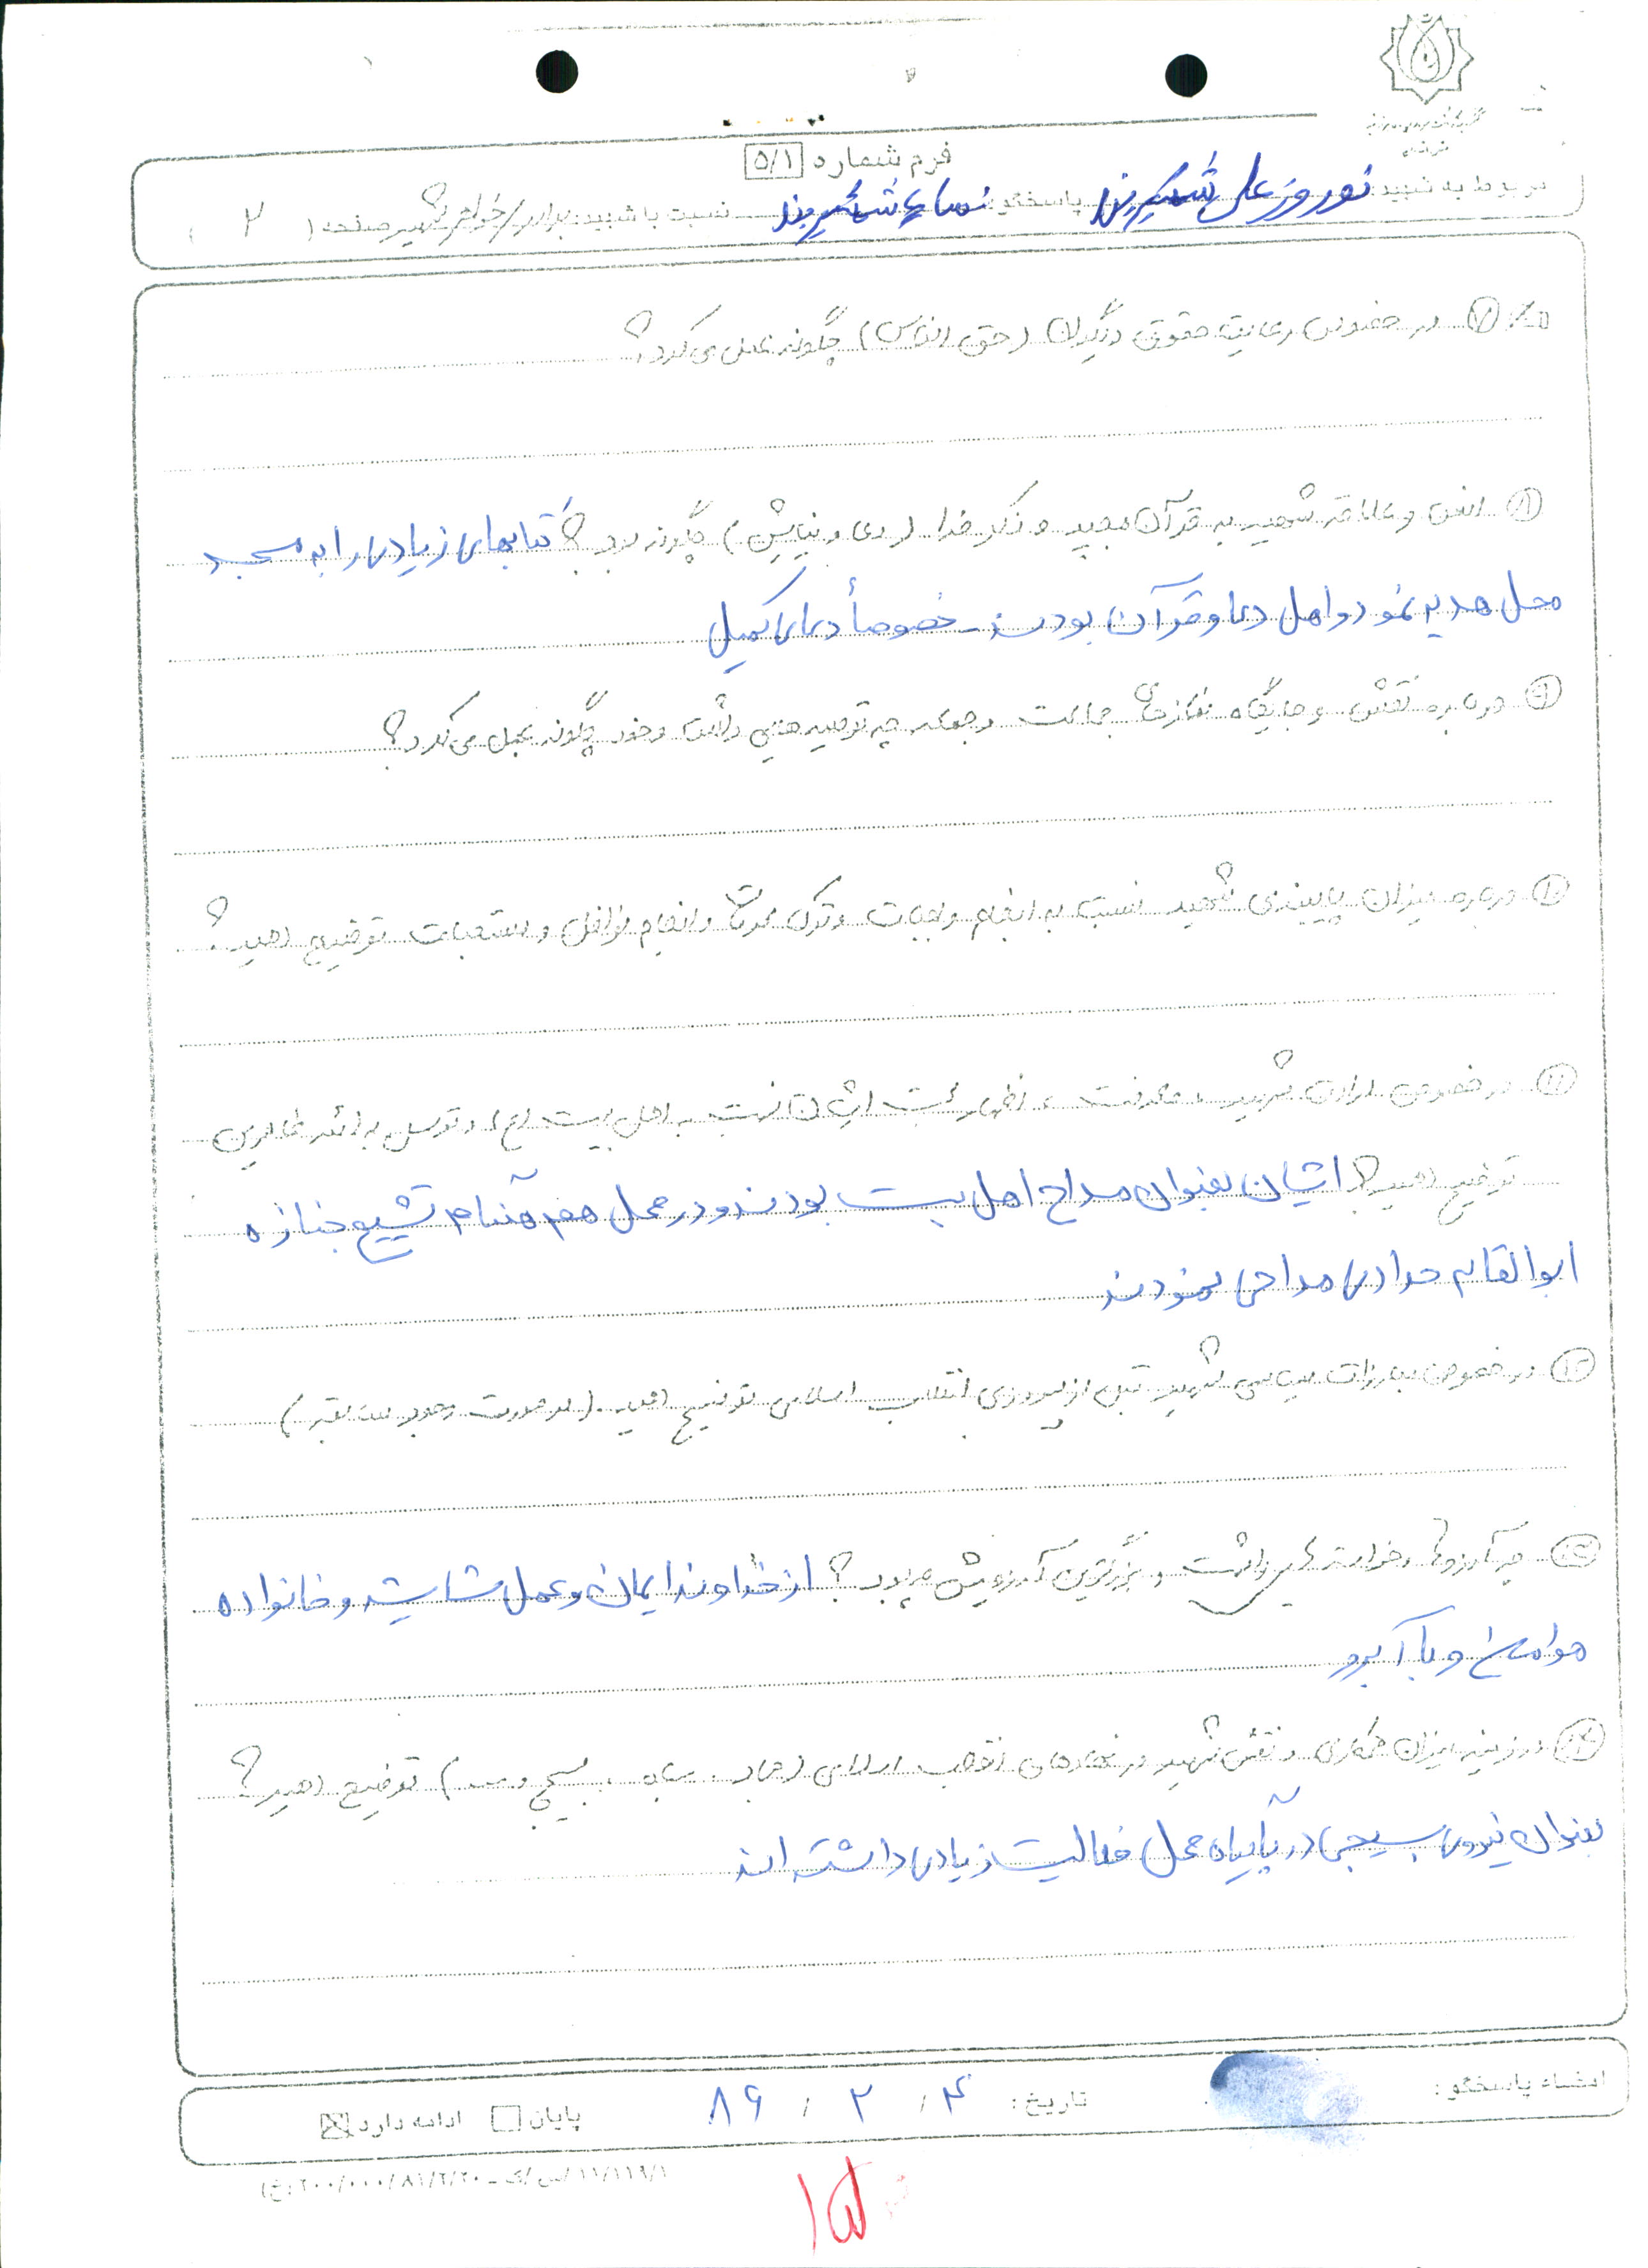 فرم شماره ۵/۱
مربوط به شهید: نوروزعلی شمشیربند پاسخگو: نساء شمشیربند نسبت با شهید: برادر/خواهر شهید صفحه ( ۲ )
۷ در خصوص رعایت حقوق دیگران (حق الناس) چگونه عمل می‌کرد؟
۸ انس و علاقه شهید به قرآن مجید و ذکر خدا (دعا و نیایش) چگونه بود؟ کتابهای زیادی را به مسجد
محل هدیه نمود و اهل دعا و قرآن بودند - خصوصاً دعای کمیل
۹ درباره نقش و جایگاه نمازهای جماعت و جمعه چه توصیه‌هایی داشت و خود چگونه عمل می‌کرد؟
۱۰ درباره میزان پایبندی شهید نسبت به انجام واجبات و ترک محرمات و انجام نوافل و مستحبات توضیح دهید؟
۱۱ در خصوص ارادت شهید، معرفت، اظهار محبت ایشان نسبت به اهل بیت (ع) و توسل به ائمه طاهرین
توضیح دهید؟ ایشان بعنوان مداح اهل بیت بودند و در محل هم هنگام تشییع جنازه
ابوالقاسم حدادی مداحی نمودند
۱۲ در خصوص مبارزات سیاسی شهید قبل از پیروزی انقلاب اسلامی توضیح دهید. (در صورت وجود سند معتبر)
۱۳ چه آرزوها و خواسته‌هایی داشت و بزرگترین آرزویش چه بود؟ از خداوند ایمان و عمل شایسته و خانواده
و با آبرو
۱۴ در زمینه میزان همکاری و نقش شهید در نهادهای انقلاب اسلامی (جهاد، سپاه، بسیج و ...) توضیح دهید؟
بعنوان نیروی بسیجی در پایگاه محل فعالیت زیادی داشته‌اند
امضاء پاسخگو: تاریخ: ۴ / ۲ / ۸۶ پایان ادامه دارد